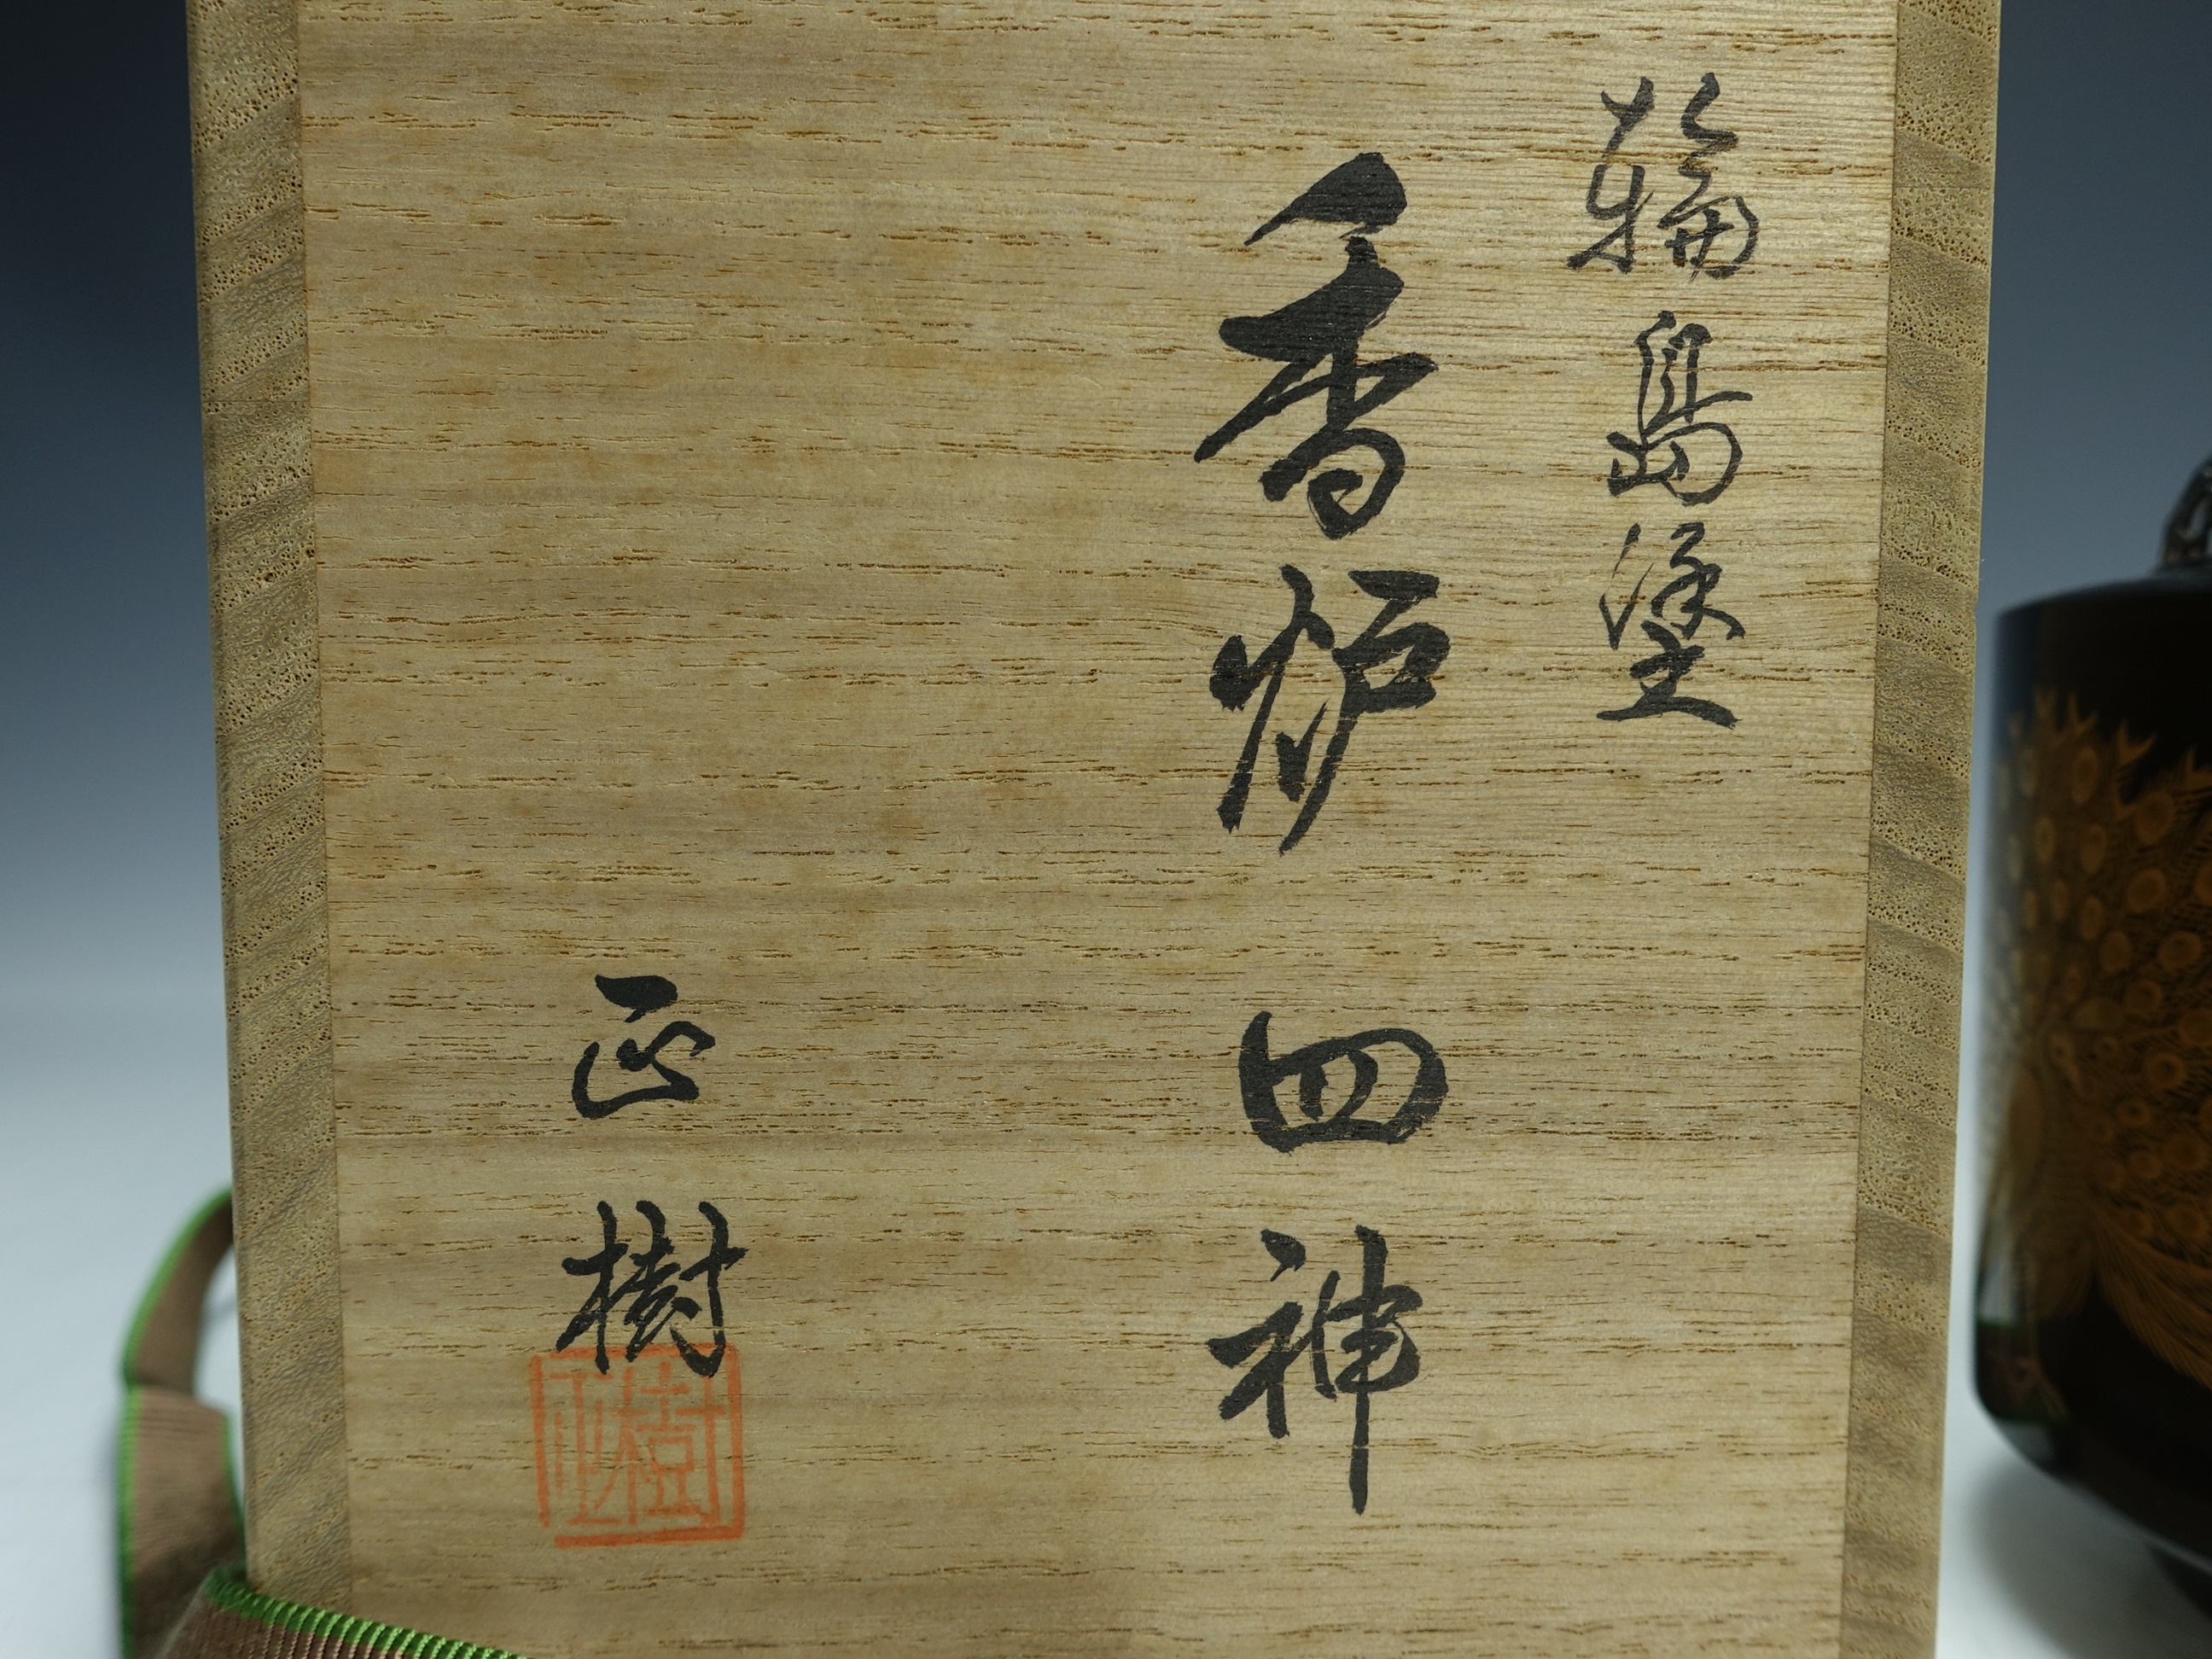 輪島塗
香炉 四神
正樹
正樹